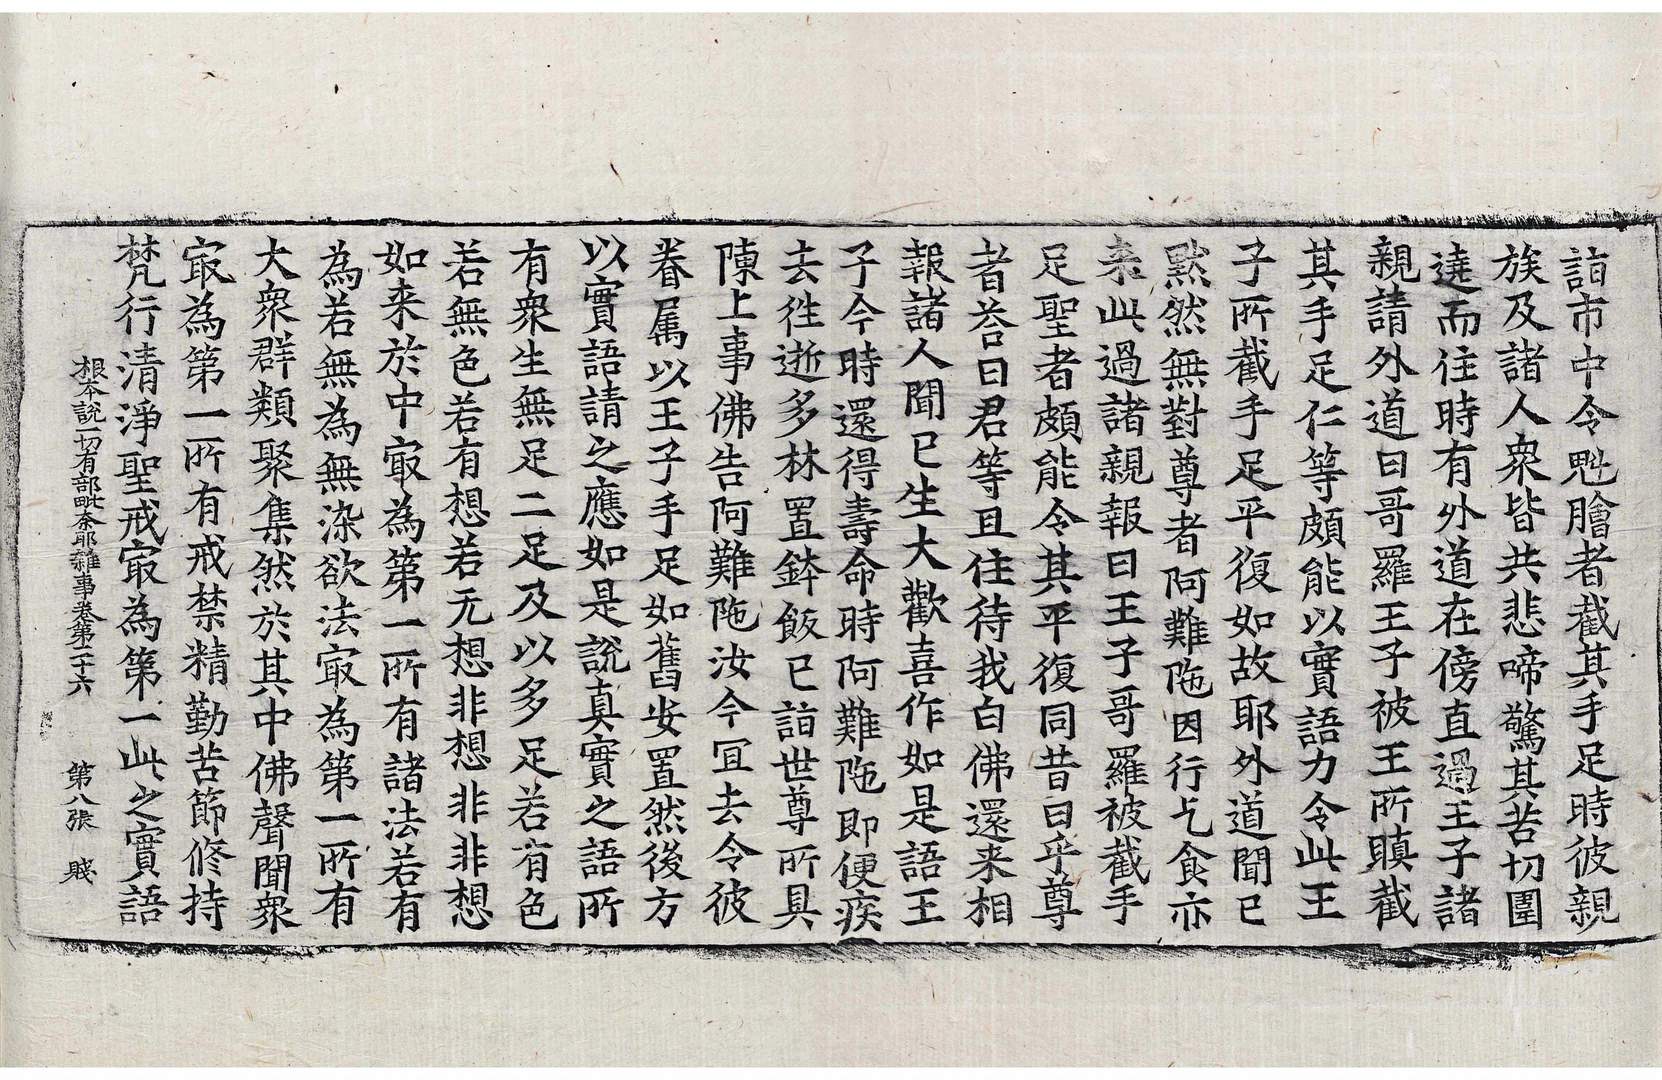 詣市中令魁膾者截其手足時彼親
族及諸人衆皆共悲啼驚其苦切圍
遶而住時有外道在傍直過王子諸
親請外道曰哥羅王子被王所瞋截
其手足仁等頗能以實語力令此王
子所截手足平復如故耶外道聞已
默然無對尊者阿難陁因行乞食亦
来此過諸親報曰王子哥羅被截手
足聖者頗能令其平復同昔日乎尊
者荅曰君等且住待我白佛還来相
報諸人聞已生大歡喜作如是語王
子今時還得壽命時阿難陁即便疾
去往逝多林置鉢飯已詣世尊所具
陳上事佛告阿難陁汝今冝去令彼
眷属以王子手足如舊安置然後方
以實語請之應如是說真實之語所
有衆生無足二足及以多足若有色
若無色若有想若无想非想非非想
如来於中㝡為第一所有諸法若有
為若無為無染欲法㝡為第一所有
大衆群類聚集然於其中佛聲聞衆
㝡為第一所有戒禁精勤苦節修持
梵行清淨聖戒㝡為第一此之實語
根本說一切有部毗奈耶雜事卷第二十六 第八張 賤